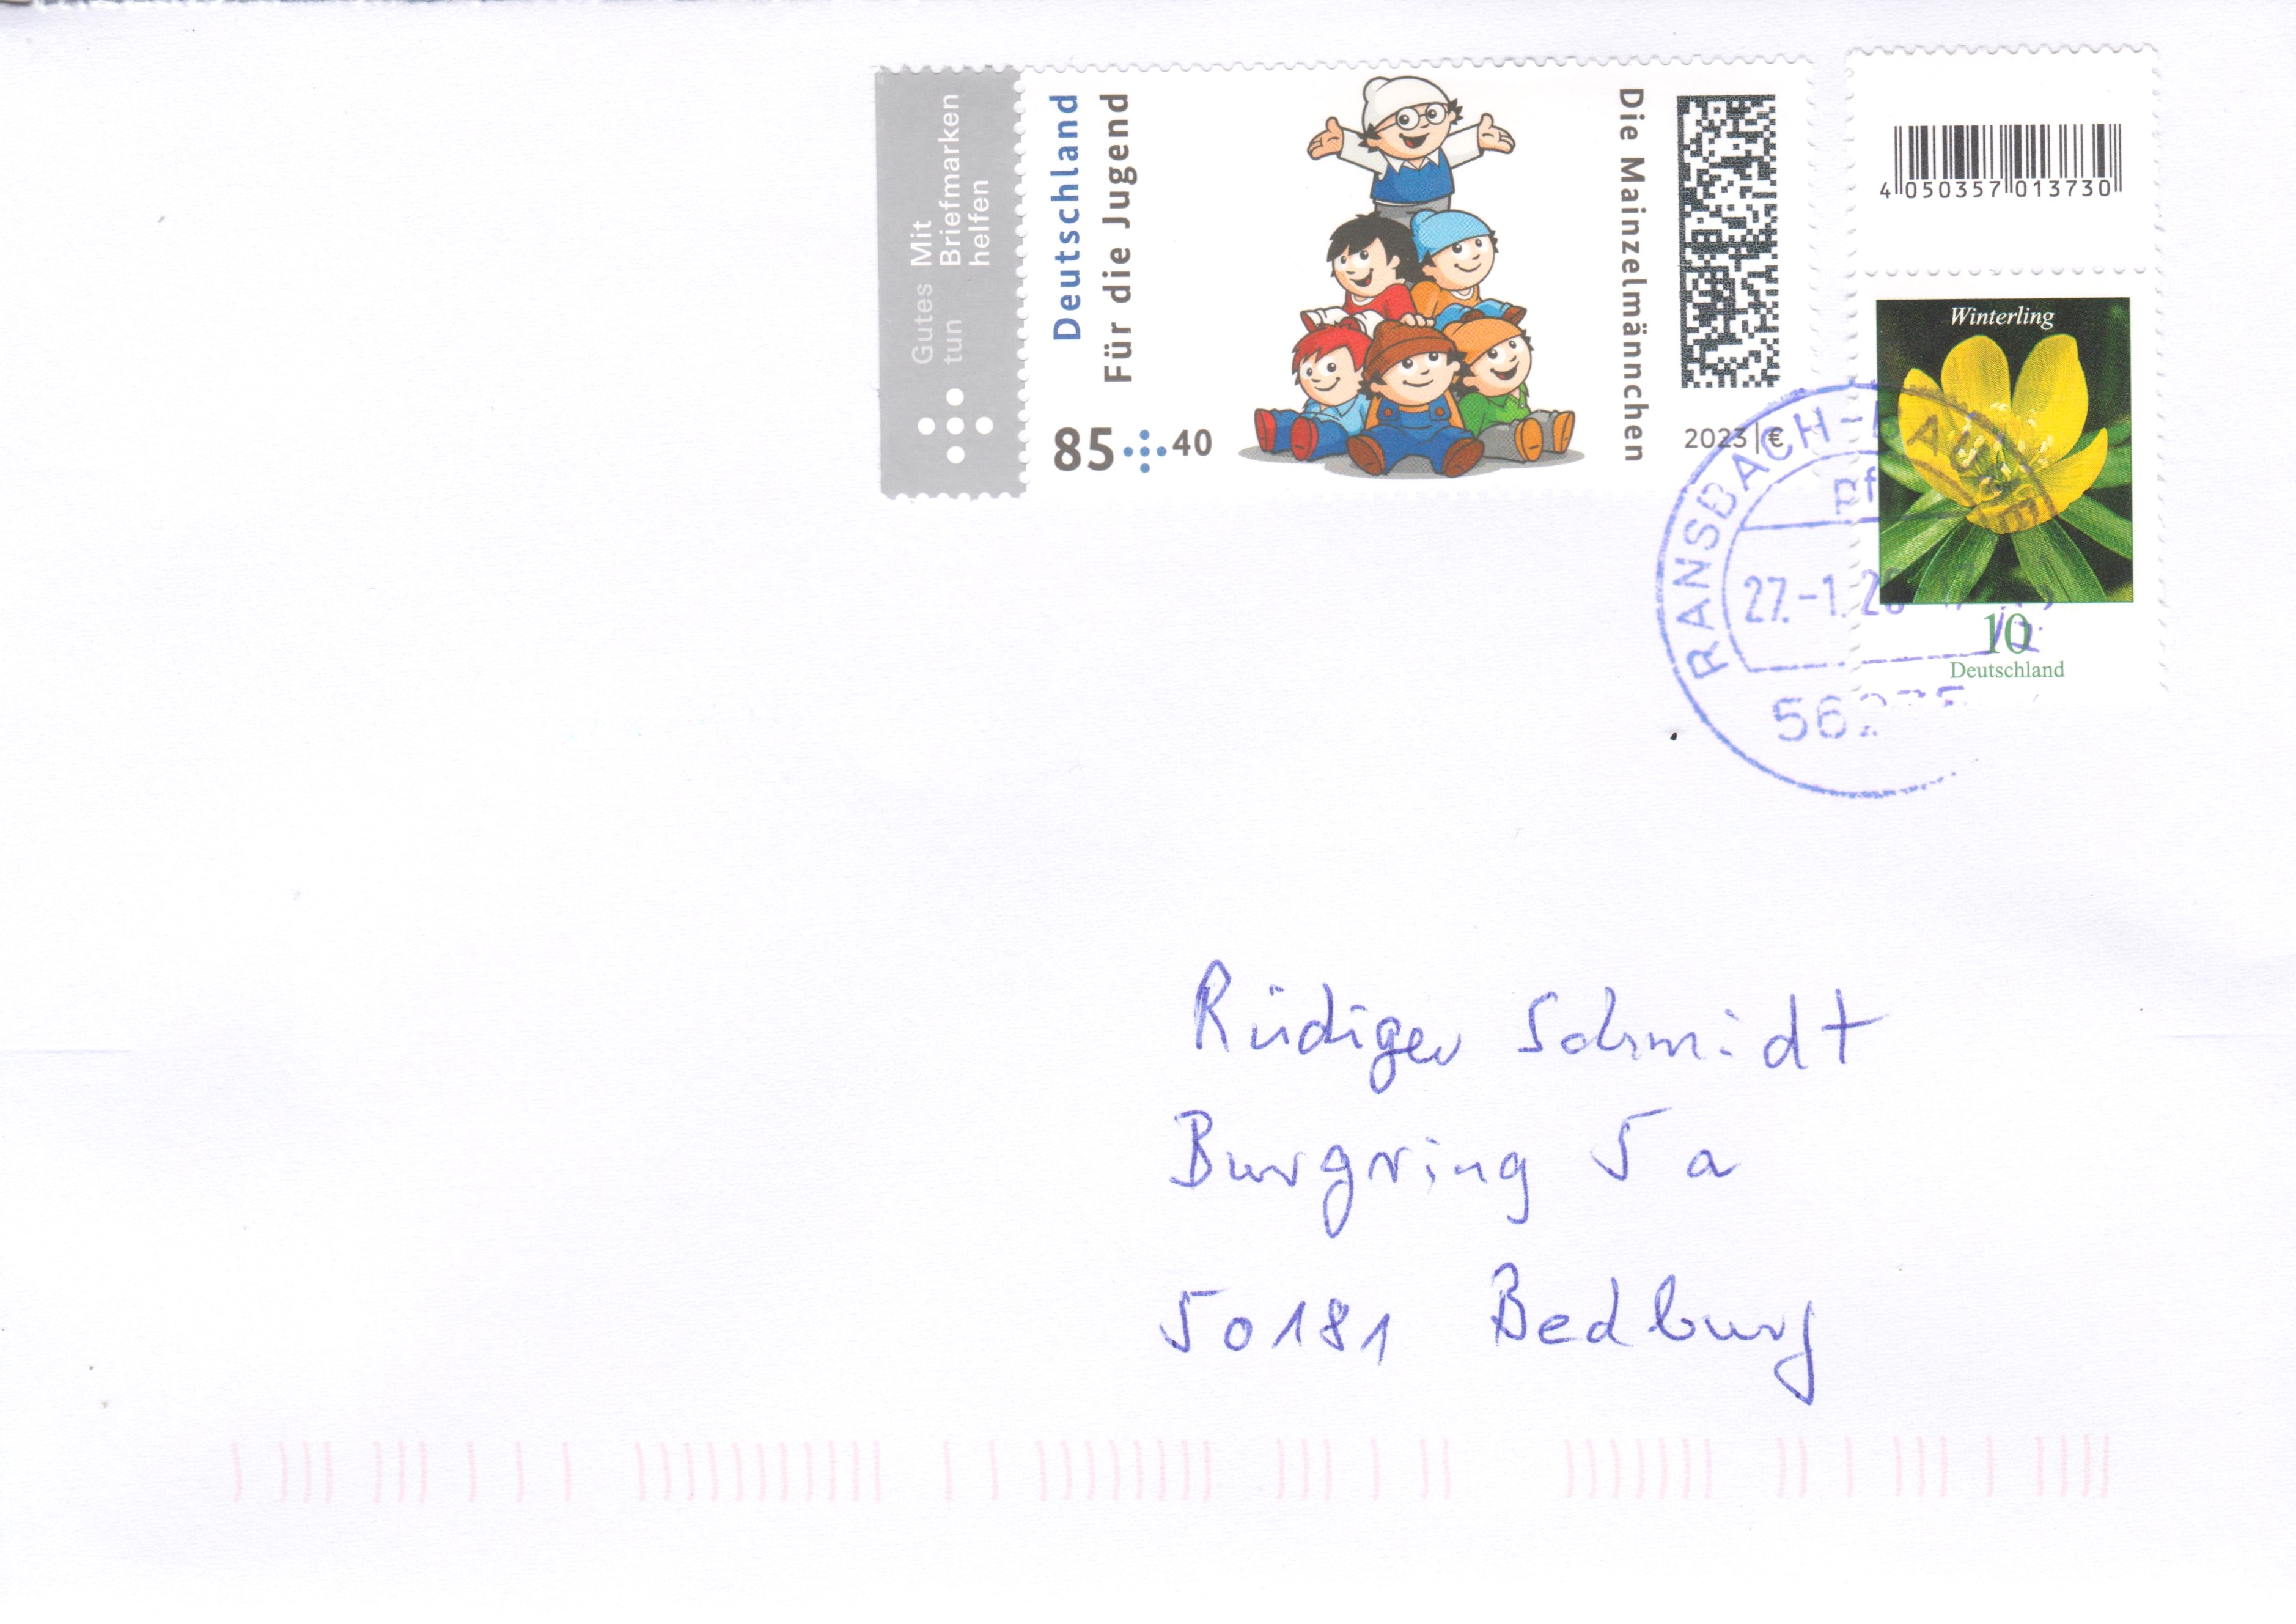 Gutes Mit
tun Briefmarken
helfen
Deutschland
Für die Jugend
85 40
Die Mainzelmännchen
2023 | €
4 050357 013730
Winterling
10
Deutschland
RANSBACH-BAUMB
27.-1.
Rüdiger Schmidt
Burgring 5 a
50181 Bedburg